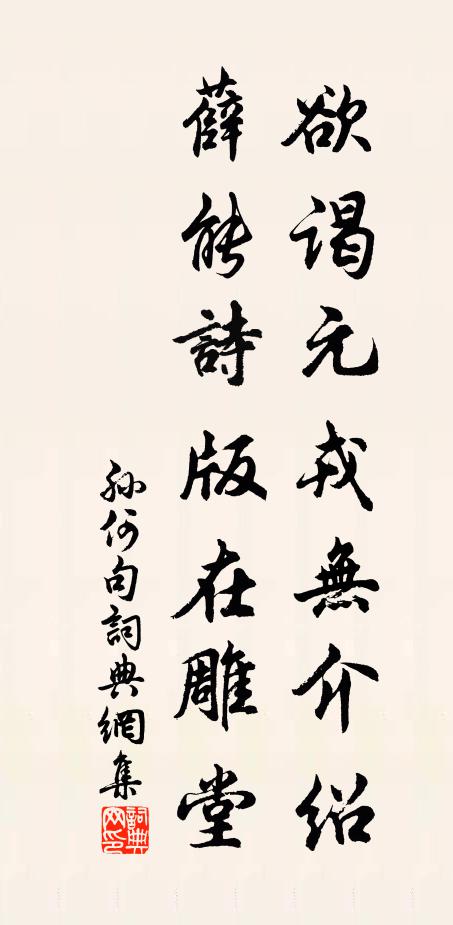 欲谒元戎無介紹
薛能詩版在雕堂
孙何句詞典網集
詞典网印